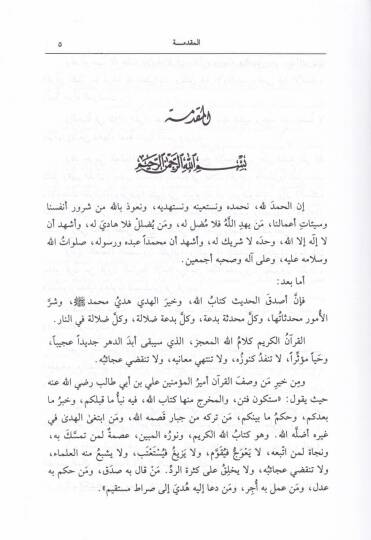 المقدمــة ٥
المقدمة
بسم الله الرحمن الرحيم
إن الحمدَ لله، نحمده ونستعينه ونستهديه، ونعوذ بالله من شرور أنفسنا
وسيئاتِ أعمالنا، مَن يهدِ اللَّهُ فلا مُضل له، ومَن يُضلل فلا هاديَ له، وأشهد أن
لا إلٰه إلا الله، وحدَه لا شريك له، وأشهد أن محمداً عبده ورسوله، صلواتُ الله
وسلامه عليه، وعلى آله وصحبه أجمعين.
أما بعد:
فإنَّ أصدقَ الحديث كتابُ الله، وخيرَ الهدي هديُ محمد ﷺ، وشرَّ
الأمور محدثاتُها، وكلَّ محدثة بدعة، وكلَّ بدعة ضلالة، وكلَّ ضلالة في النار.
القرآنُ الكريم كلامُ الله المعجز، الذي سيبقى أبدَ الدهر جديداً عجيباً،
وحَياً مؤثِّراً، لا تنفدُ كنوزُه، ولا تنتهي معانيه، ولا تنقضي عجائبُه.
ومِن خيرِ مَن وصفَ القرآن أميرُ المؤمنين علي بن أبي طالب رضي الله عنه
حيث يقول: «ستكون فتن، والمخرج منها كتاب الله، فيه نبأُ ما قبلكم، وخبرُ ما
بعدكم، وحكمُ ما بينكم، مَن تركه من جبار قصمه الله، ومَن ابتغىٰ الهدىٰ في
غيره أضلَّه الله. وهو كتابُ الله الكريم، ونورُه المبين، عصمةٌ لمن تمسَّكَ به،
ونجاة لمن اتَّبعه، لا يَعْوَجُّ فيُقَوَّم، ولا يَزيغُ فيُسْتَعْتَب، ولا يشبعُ منه العلماء،
ولا تنقضي عجائبُه، ولا يخلِقُ على كثرة الردِّ. مَن قال به صدَق، ومَن حكم به
عدل، ومَن عمل به أُجِر، ومَن دعا إليه هُدِيَ إلى صراط مستقيم».